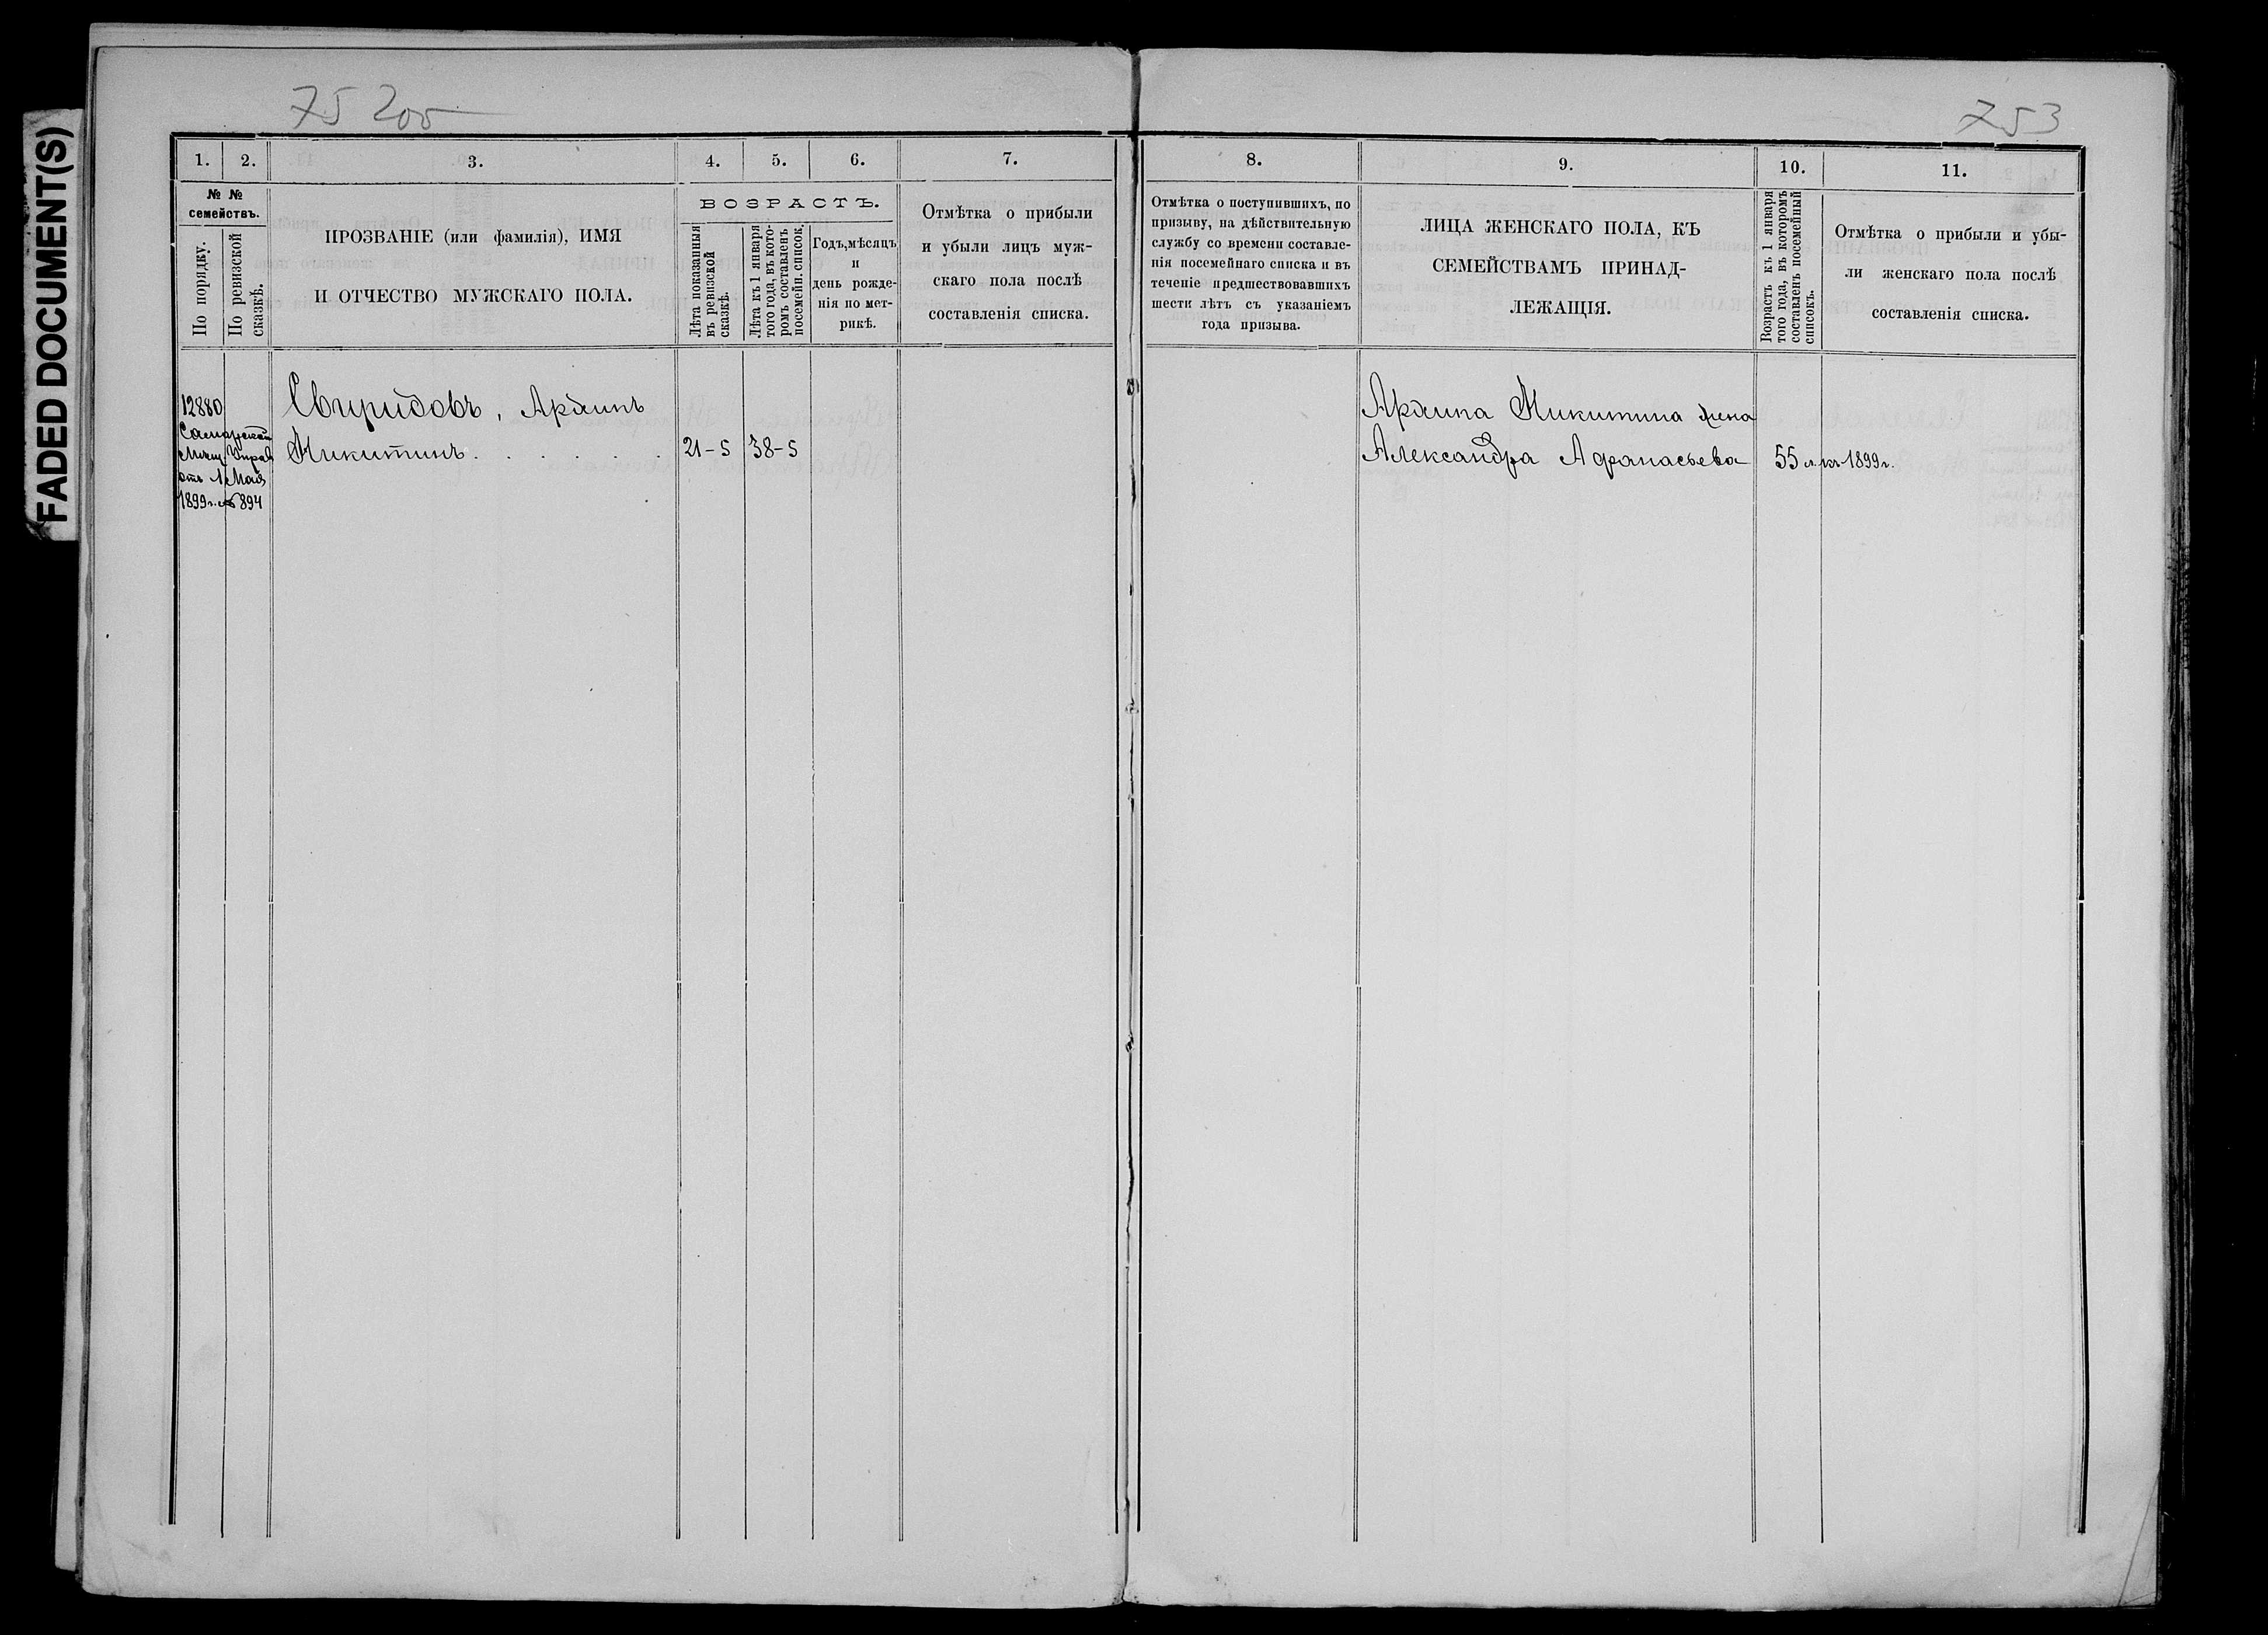 75 200
753
FADED DOCUMENT(S)
1.
2.
3.
4.
5.
6.
7.
8.
9.
10.
11.
№ №
семействъ.
По порядку.
По ревизской
сказкѣ.
ПРОЗВАНІЕ (или фамилія), ИМЯ
И ОТЧЕСТВО МУЖСКАГО ПОЛА.
ВОЗРАСТЪ.
Лѣта показанныя
въ ревизской
сказкѣ.
Лѣта къ 1 января
того года, въ кото-
ромъ составленъ
посемейн. список.
Годъ, мѣсяцъ
и
день рожде-
нія по мет-
рикѣ.
Отмѣтка о прибыли
и убыли лицъ муж-
скаго пола послѣ
составленія списка.
Отмѣтка о поступившихъ, по
призыву, на дѣйствительную
службу со времени составле-
нія посемейнаго списка и въ
теченіе предшествовавшихъ
шести лѣтъ съ указаніемъ
года призыва.
ЛИЦА ЖЕНСКАГО ПОЛА, КЪ
СЕМЕЙСТВАМЪ ПРИНАД-
ЛЕЖАЩІЯ.
Возрастъ къ 1 января
того года, въ которомъ
составленъ посемейный
списокъ.
Отмѣтка о прибыли и убы-
ли женскаго пола послѣ
составленія списка.
12880
Самарской
Мѣщ. Управ
отъ 1 Мая
1899 г. № 894
Свиридовъ,
Никитинъ . . . . . .
21-5
38-5
Никитина жена
Александра Афанасьева
55 л. къ 1899 г.